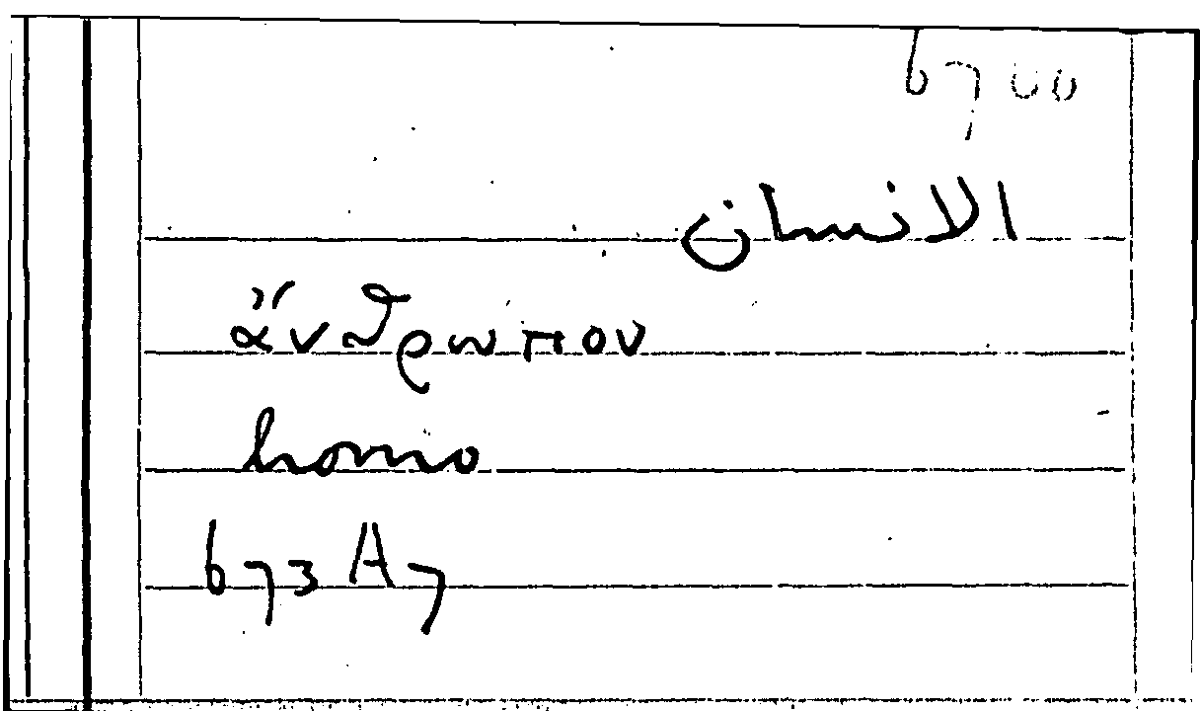 6700
الانسان
ἄνθρωπον
homo
673 A 7